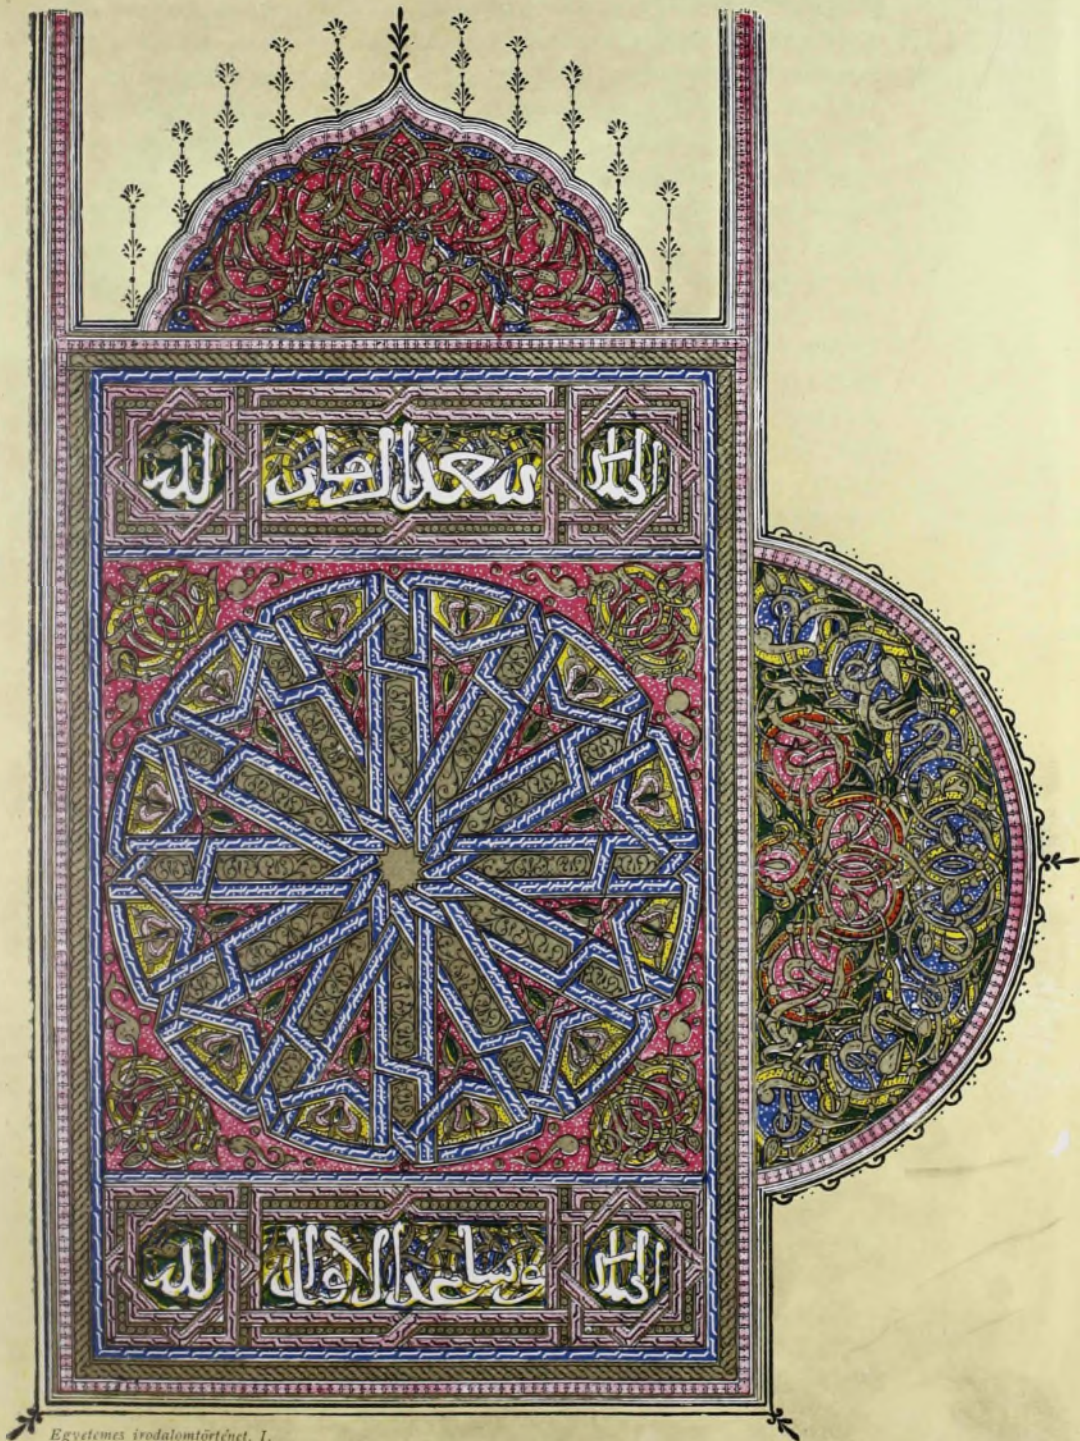 الحمد سعد الزمان لله
الحمد وساعد الاقبال لله
Egyetemes irodalomtörténet. I.